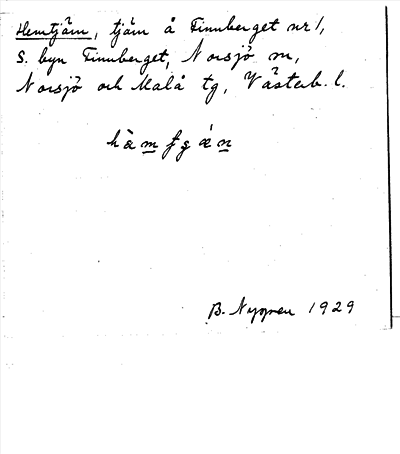 Hemtjärn, tjärn å Finnberget nr 1,
S. byn Finnberget, Norsjö sn,
Norsjö och Malå tg, Västerb. l.
B. Nygren 1929